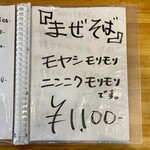 『まぜそば』
モヤシモリモリ
ニンニクモリモリ
です。
¥1,100-